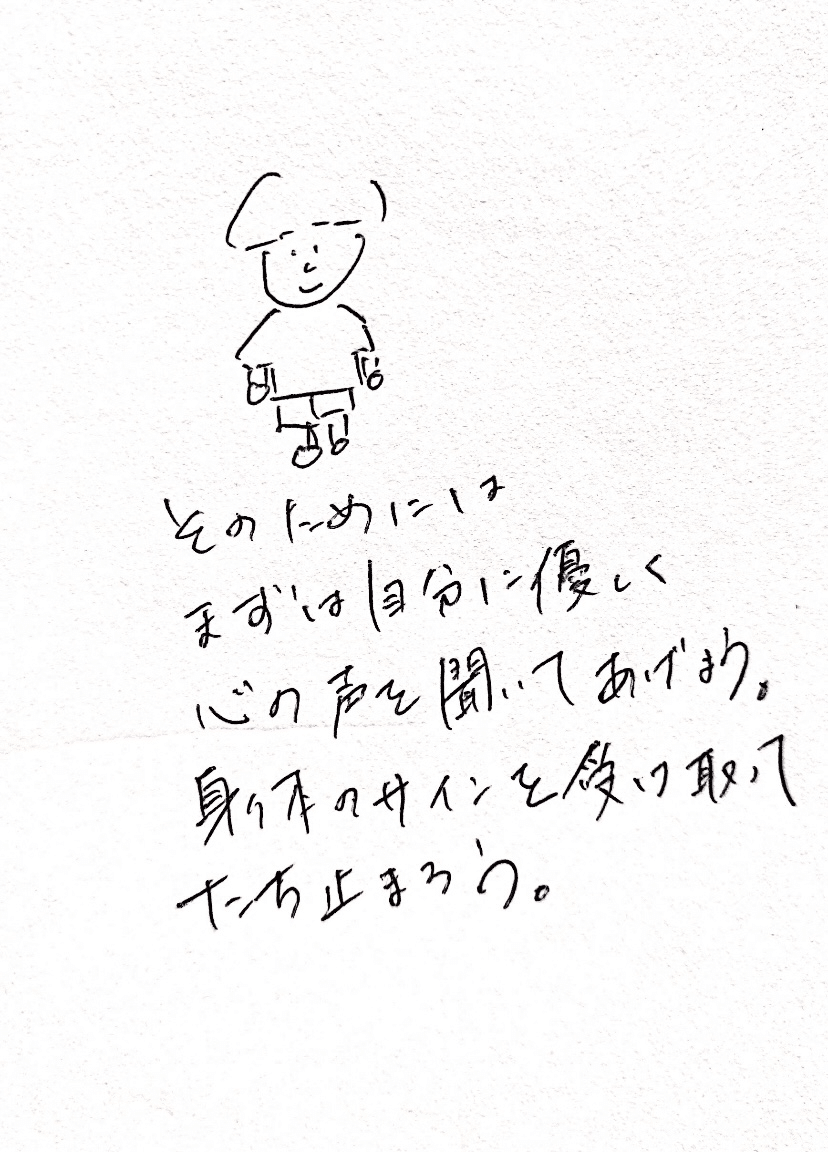 そのためには
まずは自分に優しく
心の声を聞いてあげよう。
身体のサインを受け取って
たち止まろう。